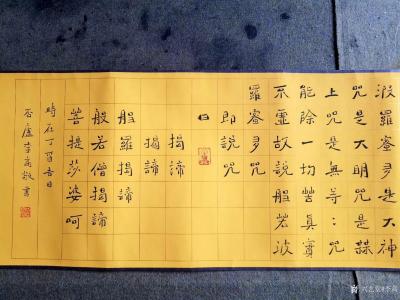 波羅蜜多是大神
咒是大明咒是無
上咒是無等：咒
能除一切苦真實
不虛故說般若波
羅蜜多咒
即說咒
曰
揭諦
揭諦
般羅揭諦
般若僧揭諦
菩提莎婆呵
時在丁酉吉日
吾廬李高敬書